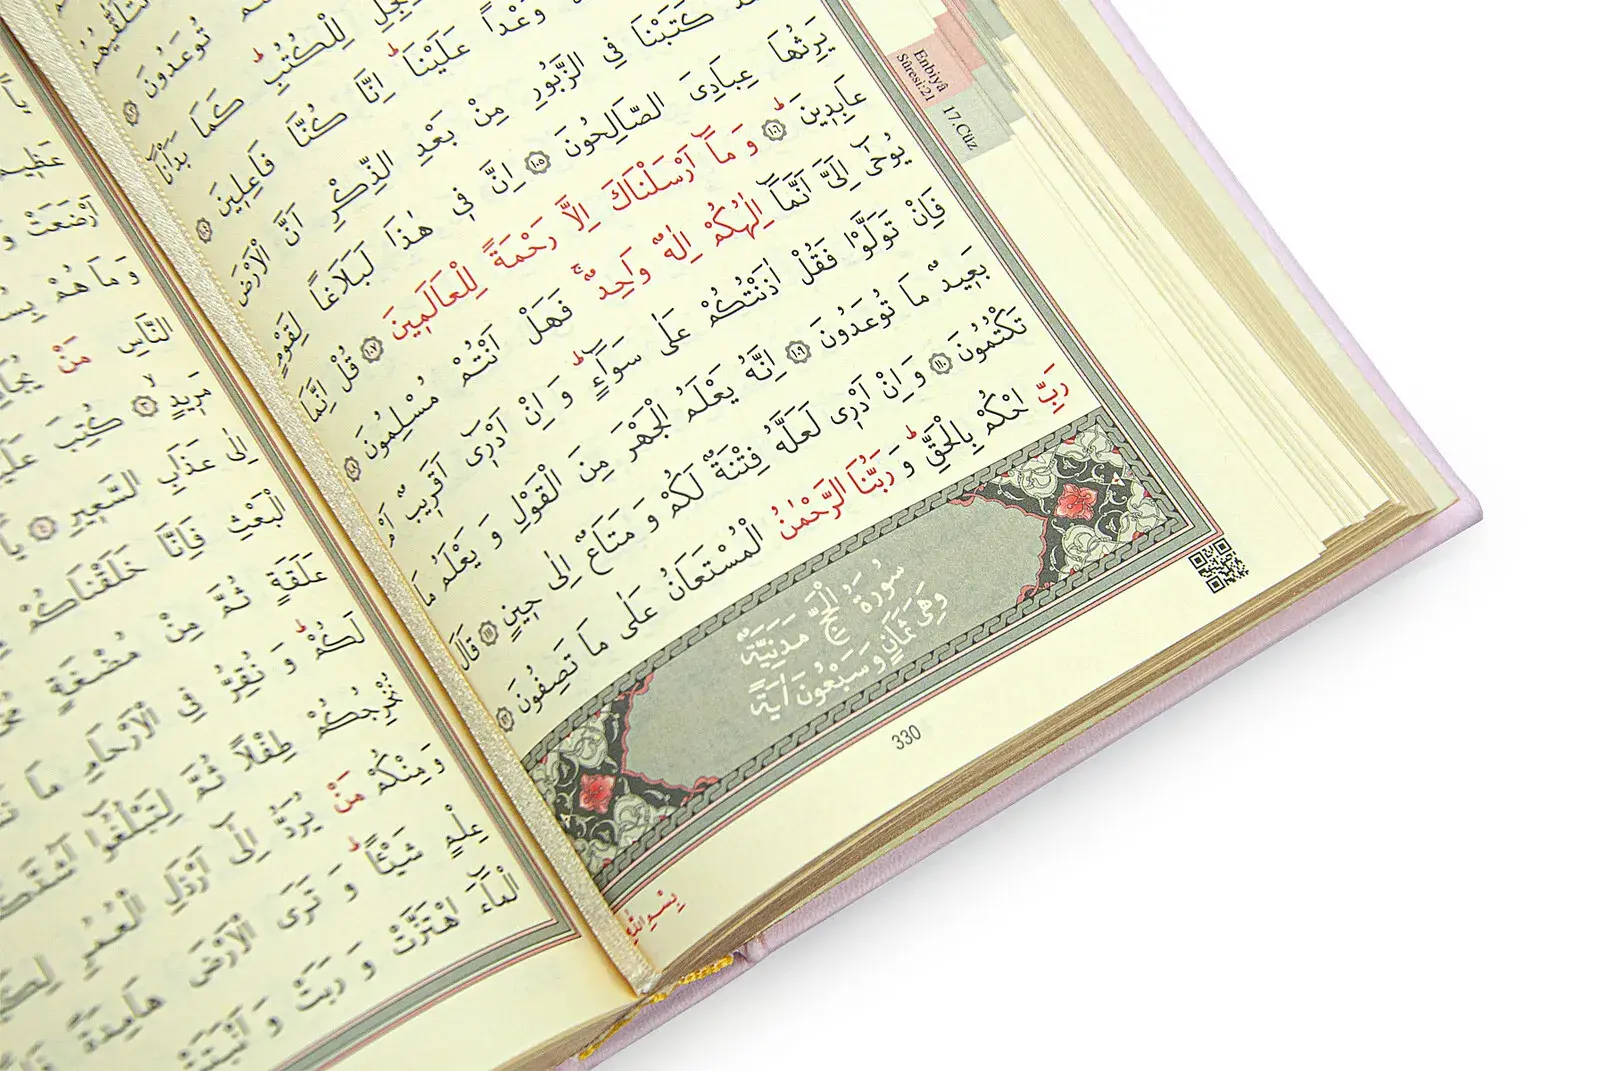 Enbiyâ
Sûresi:21
17.Cüz
تُوعَدُونَ ﴿١٠٣﴾
لِلْكُتُبِ كَمَا بَدَأْنَٓا
وَعْدًا عَلَيْنَا اِنَّا كُنَّا فَاعِلِينَ ﴿١٠٤﴾
كَتَبْنَا فِي الزَّبُورِ مِنْ بَعْدِ الذِّكْرِ اَنَّ الْاَرْضَ
يَرِثُهَا عِبَادِىَ الصَّالِحُونَ ﴿١٠٥﴾ اِنَّ فِى هٰذَا لَبَلَاغًا لِقَوْمٍ
عَابِدِينَ ﴿١٠٦﴾ وَمَٓا اَرْسَلْنَاكَ اِلَّا رَحْمَةً لِلْعَالَمِينَ ﴿١٠٧﴾ قُلْ اِنَّمَا
يُوحٰٓى اِلَىَّ اَنَّمَٓا اِلٰهُكُمْ اِلٰهٌ وَاحِدٌ فَهَلْ اَنْتُمْ مُسْلِمُونَ ﴿١٠٨﴾
فَاِنْ تَوَلَّوْا فَقُلْ اٰذَنْتُكُمْ عَلٰى سَوَٓاءٍ وَاِنْ اَدْرٰٓى اَقَرِيبٌ اَمْ
بَعِيدٌ مَا تُوعَدُونَ ﴿١٠٩﴾ اِنَّهُ يَعْلَمُ الْجَهْرَ مِنَ الْقَوْلِ وَيَعْلَمُ مَا
تَكْتُمُونَ ﴿١١٠﴾ وَاِنْ اَدْرٰى لَعَلَّهُ فِتْنَةٌ لَكُمْ وَمَتَاعٌ اِلٰى حِينٍ ﴿١١١﴾ قَالَ
رَبِّ احْكُمْ بِالْحَقِّ وَرَبُّنَا الرَّحْمٰنُ الْمُسْتَعَانُ عَلٰى مَا تَصِفُونَ ﴿١١٢﴾
سُورَةُ الْحَجِّ مَدَنِيَّةٌ
وَهِىَ ثَمَانٍ وَسَبْعُونَ اٰيَةً
330
بِسْمِ اللّٰهِ
عَظِيمٌ
اَرْضَعَتْ وَ
وَمَا هُمْ
النَّاسِ مَنْ
مَرِيدٍ ﴿٣﴾ كُتِبَ
اِلٰى عَذَابِ السَّعِيرِ ﴿٤﴾ يَٓا
الْبَعْثِ فَاِنَّا خَلَقْنَاكُمْ
عَلَقَةٍ ثُمَّ مِنْ مُضْغَةٍ
لَكُمْ وَنُقِرُّ فِي الْاَرْحَامِ مَا
نُخْرِجُكُمْ طِفْلًا ثُمَّ لِتَبْلُغُٓوا
وَمِنْكُمْ مَنْ يُرَدُّ اِلٰٓى اَرْذَلِ الْعُمُرِ
عِلْمٍ شَيْـًٔا وَتَرَى الْاَرْضَ هَامِدَةً
الْمَٓاءَ اهْتَزَّتْ وَرَبَتْ وَاَنْبَتَتْ